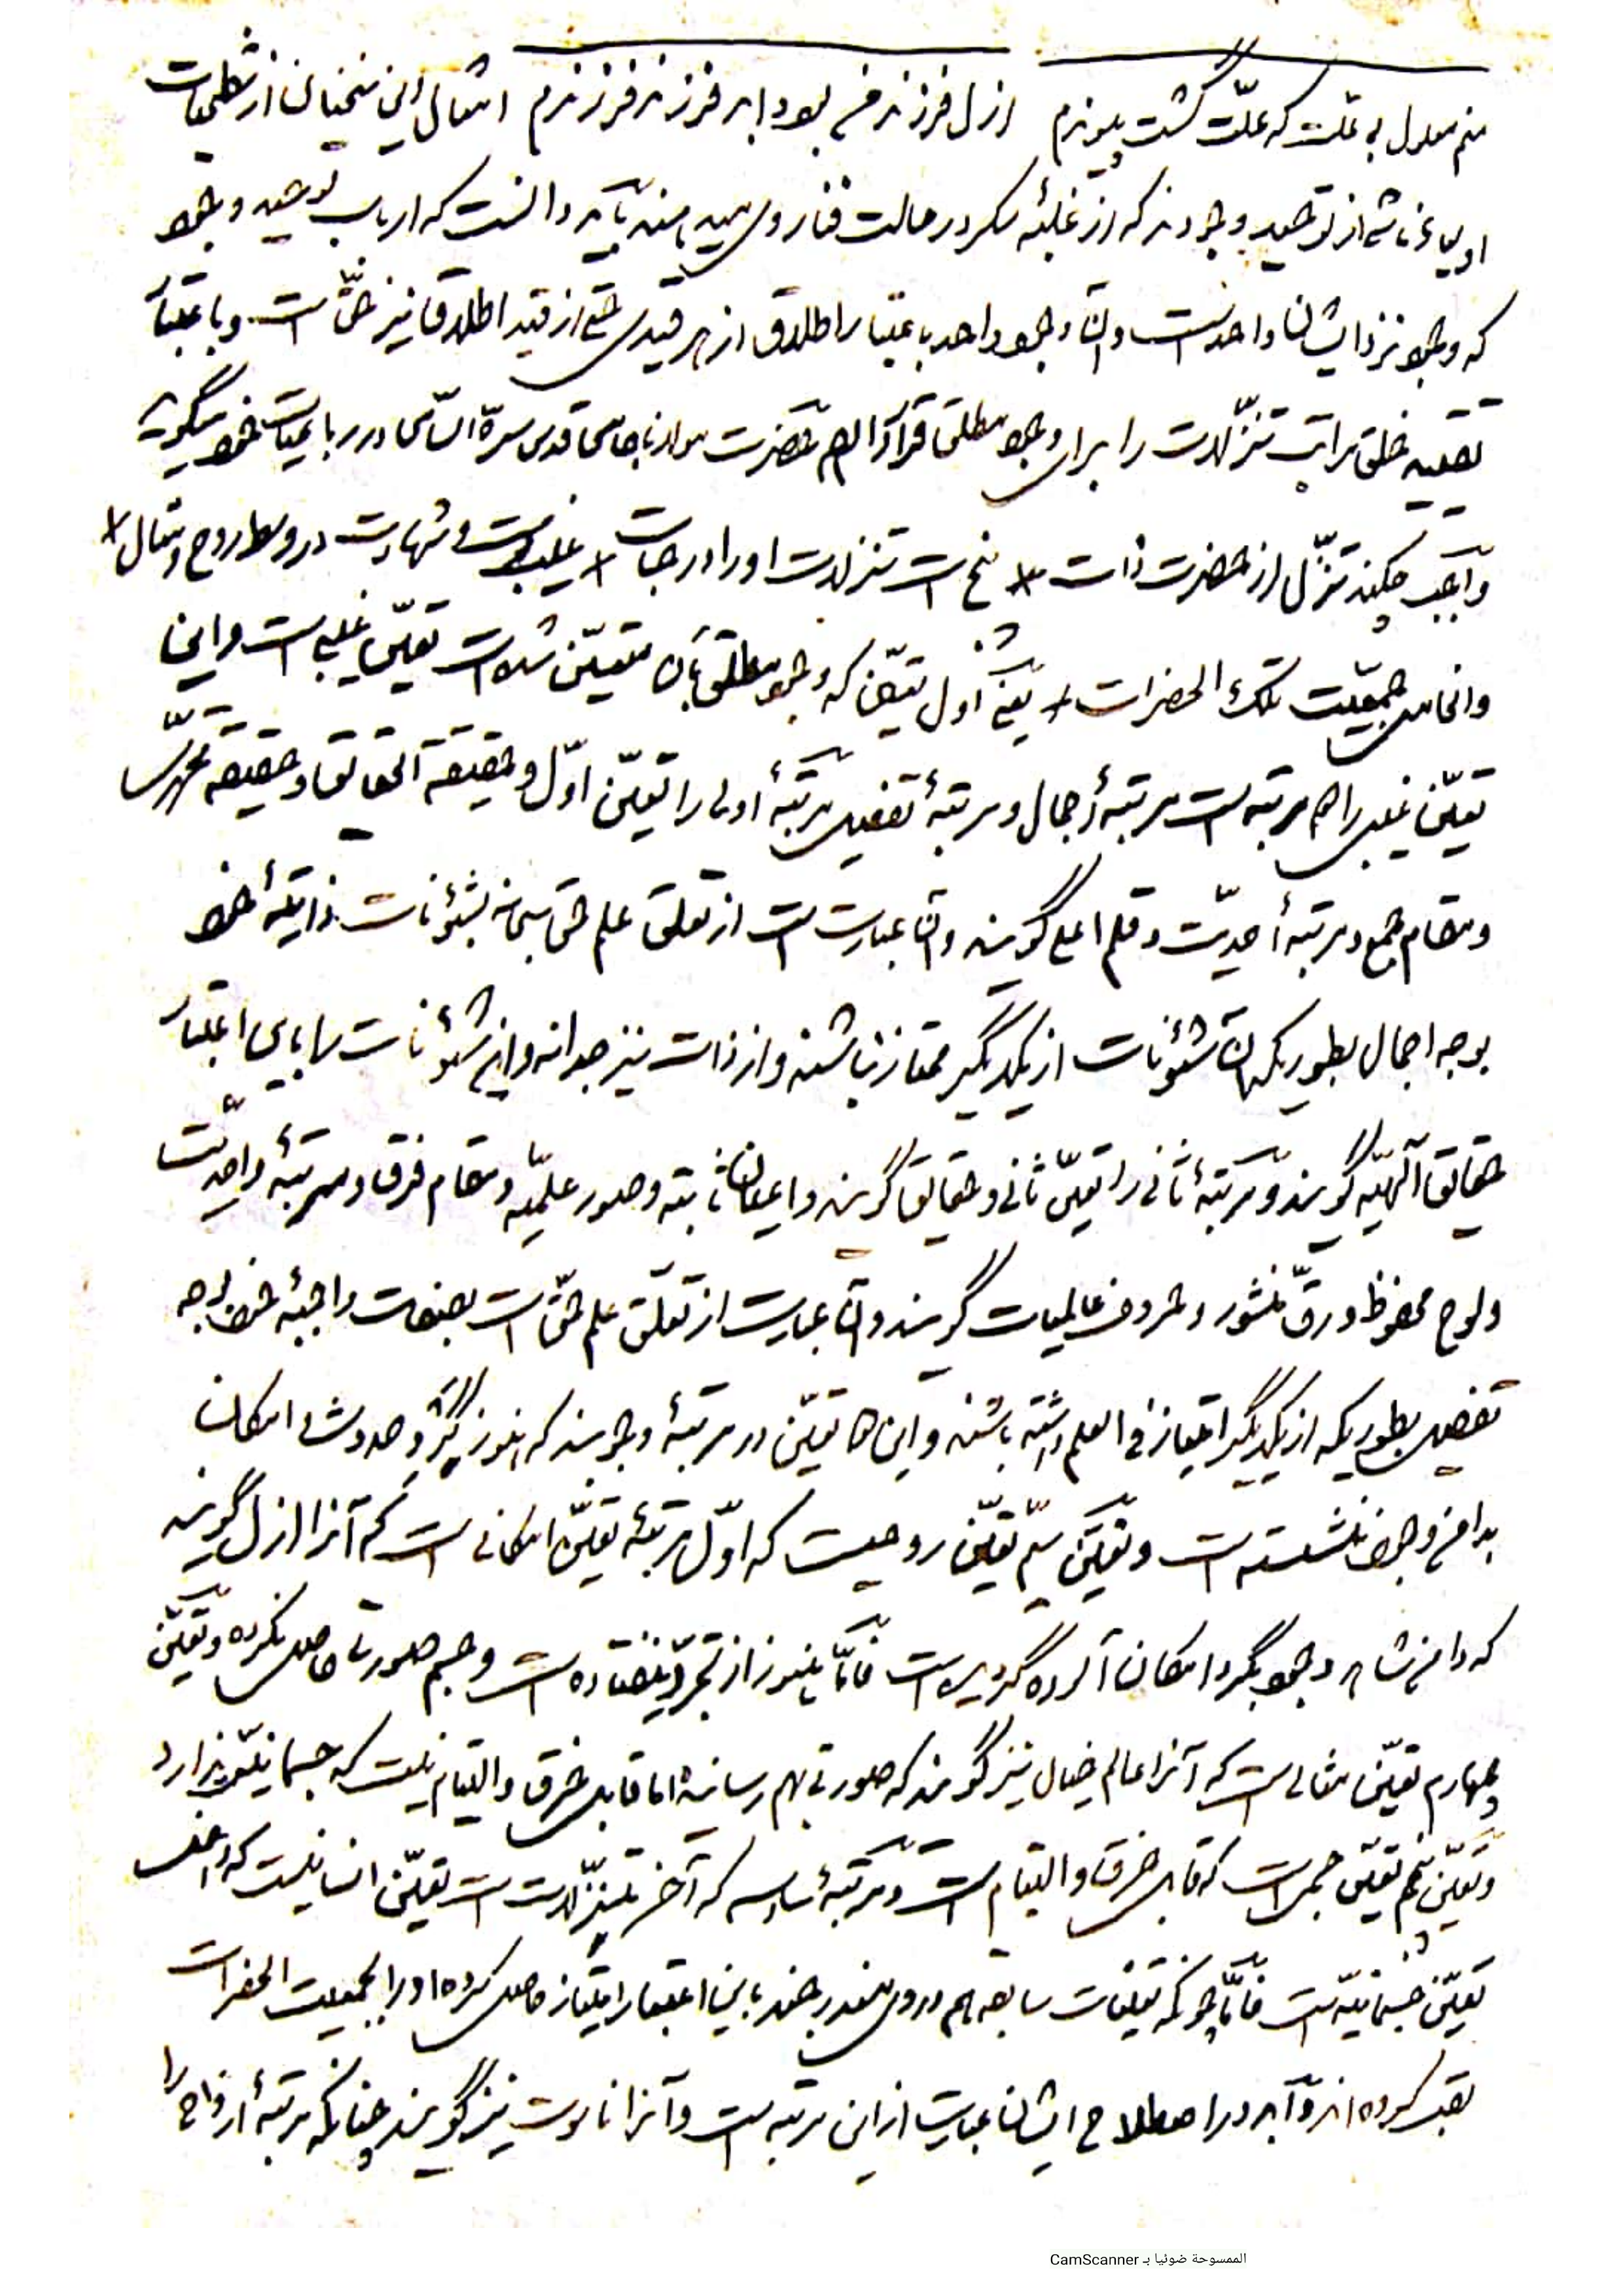 منم معلول بی علت که علّت گشت پیوندم ازل فرزند من بود ابد فرزند فرزندم امثال این سخنان از شطحیات
اولیاء ناشی از توحید وجودند که از غلبهٔ سکر در حالت فنا روی میدهند باید دانست که ارباب توحید وجود
که وجود نزد ایشان واحدست و آن وجود واحد باعتبار اطلاق از هر قیدی حتی از قید اطلاق نیز حقّ است و باعتبار
تقیید خلق مراتب تنزّلات را برای وجود مطلق قرار داده‌اند حضرت مولانا جامی قدس سرّه السّامی در رباعیات خود میگوید
واجب چو کند تنزّل از حضرت ذات * پنج است تنزلات او را درجات * غیب است و شهادت در وسط روح و مثال *
والخامس جمعیت تلک الحضرات * یعنی اول تعیّن که وجود مطلق بآن متعیّن شده است تعیّن غیبی است و این
تعیّن غیبی را دو مرتبه است مرتبهٔ اجمال و مرتبهٔ تفصیل مرتبهٔ اولی را تعیّن اوّل و حقیقة الحقائق و حقیقت محمّدی
و مقام جمع و مرتبهٔ احدیّت و قلم اعلی گویند و آن عبارت است از تعلق علم حق سبحانه بشئونات ذاتیهٔ خود
بوجه اجمال بطوریکه آن شئونات از یکدیگر ممتاز نباشند و از ذات نیز جدا نه و این شئونات را باین اعتبار
حقائق الٓهیّه گویند و مرتبهٔ ثانی را تعیّن ثانی و حقایق گویند و اعیان ثابته و صور علمیّه و مقام فرق و مرتبهٔ واحدیّت
و لوح محفوظ و رقّ منشور و حروف عالیات گویند و آن عبارت از تعلّق علم حقّ است بصفات واجبهٔ خود بوجه
تفصیل بطوریکه از یکدیگر امتیاز فی العلم داشته باشند و این دو تعیّن در مرتبهٔ وجوبند که هنوز گرد حدوث و امکان
بدامن وجود ننشسته است و تعیّن سیّم تعیّن روحیست که اوّل مرتبهٔ تعیّن امکانی است که آنرا ازل گویند
که دامن شاهد وجود بگرد امکان آلوده گردیده است فامّا هنوز از تجرّد نیفتاده است و جسم صورت حاصل نکرده و تعیّن
چهارم تعیّن مثالی است که آنرا عالم خیال نیز گویند که صورتی بهم رسانده اما قابل خرق و التیام نیست که جسمانیّت ندارد
و تعیّن پنجم تعیّن جسمی است که قابل خرق و التیام است و مرتبهٔ سادسه که آخر تنزّلات است تعیّن انسانیست که داخل
تعیّن جسمانیّه است فامّا چونکه تعیّنات سابقه هم در وی مندرجند باین اعتبار امتیاز حاصل کرده او را بجمعیت الحضرات
تعبیر کرده‌اند و ابد در اصطلاح ایشان عبارت از این مرتبه است و آنرا ناسوت نیز گویند چنانکه مرتبهٔ ارواح را
الممسوحة ضوئيا بـ CamScanner